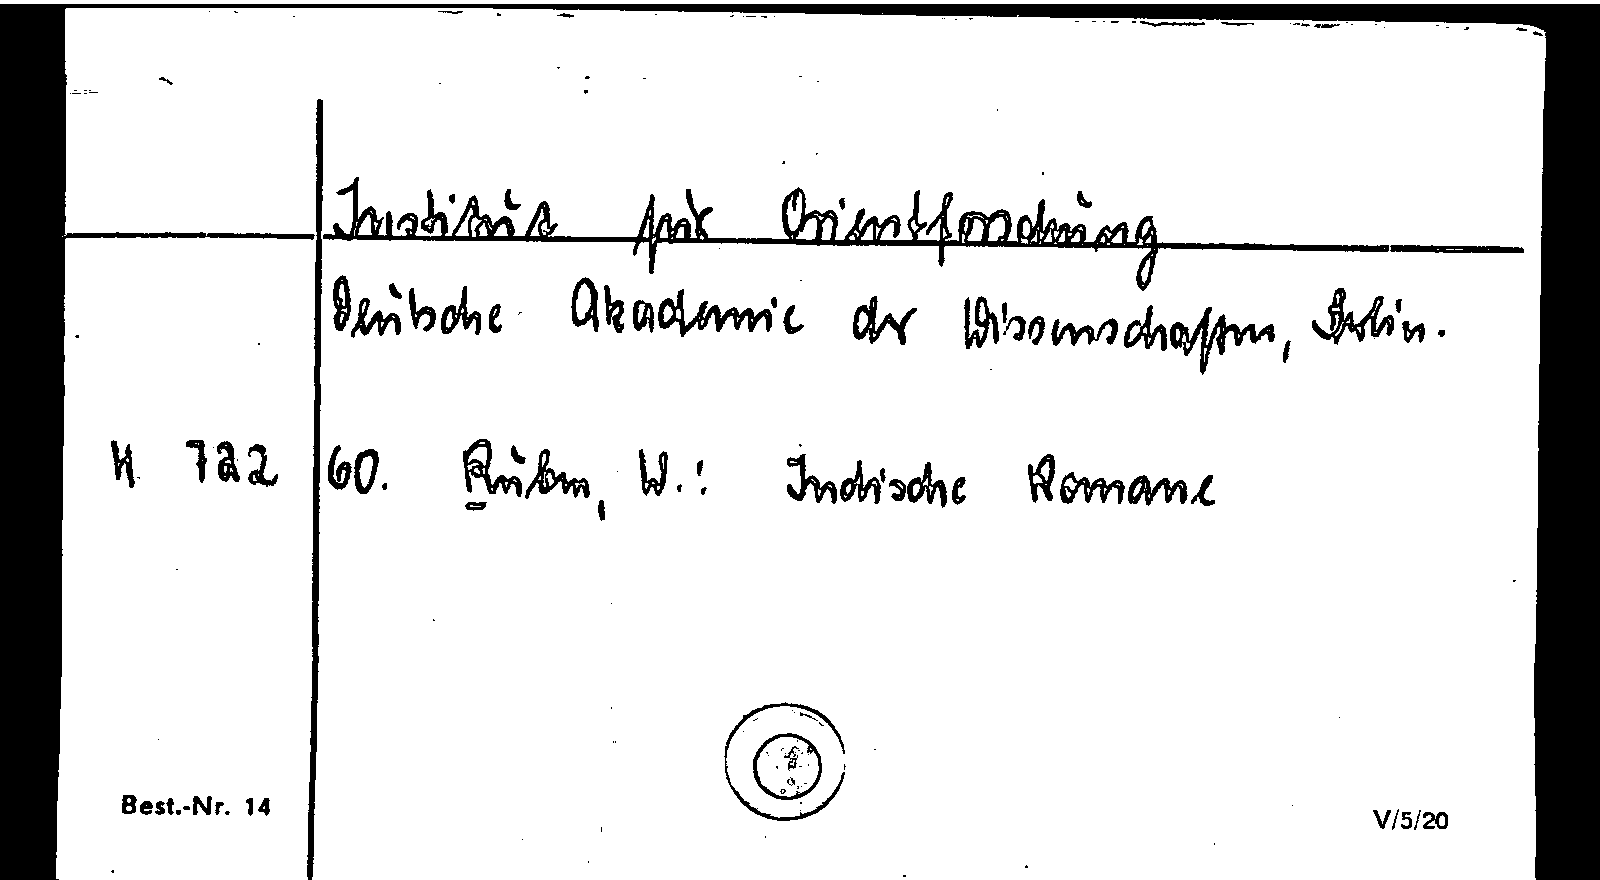 Institut für Orientforschung
Deutsche Akademie der Wissenschaften, Berlin.
H 722 60. Ruben, W.: Indische Romane
Best.-Nr. 14 V/5/20